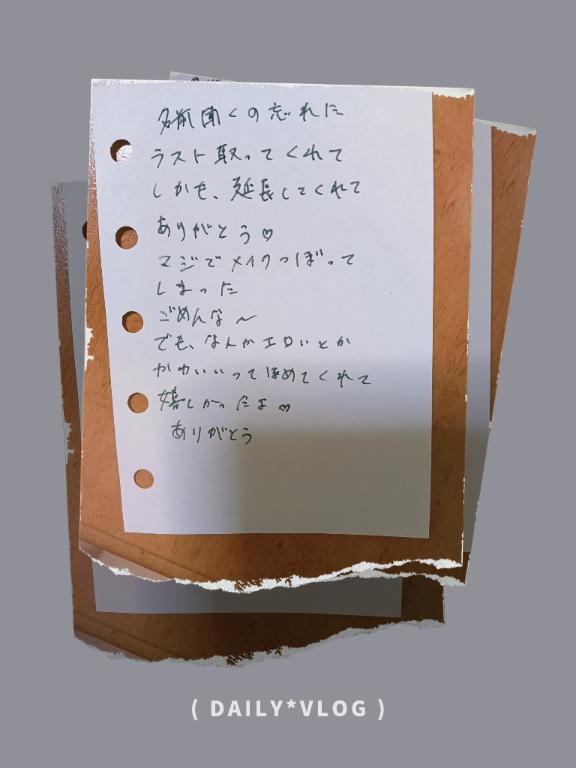 名前聞くの忘れた
ラスト取ってくれて
しかも、延長してくれて
ありがとう♡
マジでメイクつぼって
しまった
ごめんな〜
でも、なんかエロいとか
かわいいってほめてくれて
嬉しかったよ♡
ありがとう
( DAILY*VLOG )